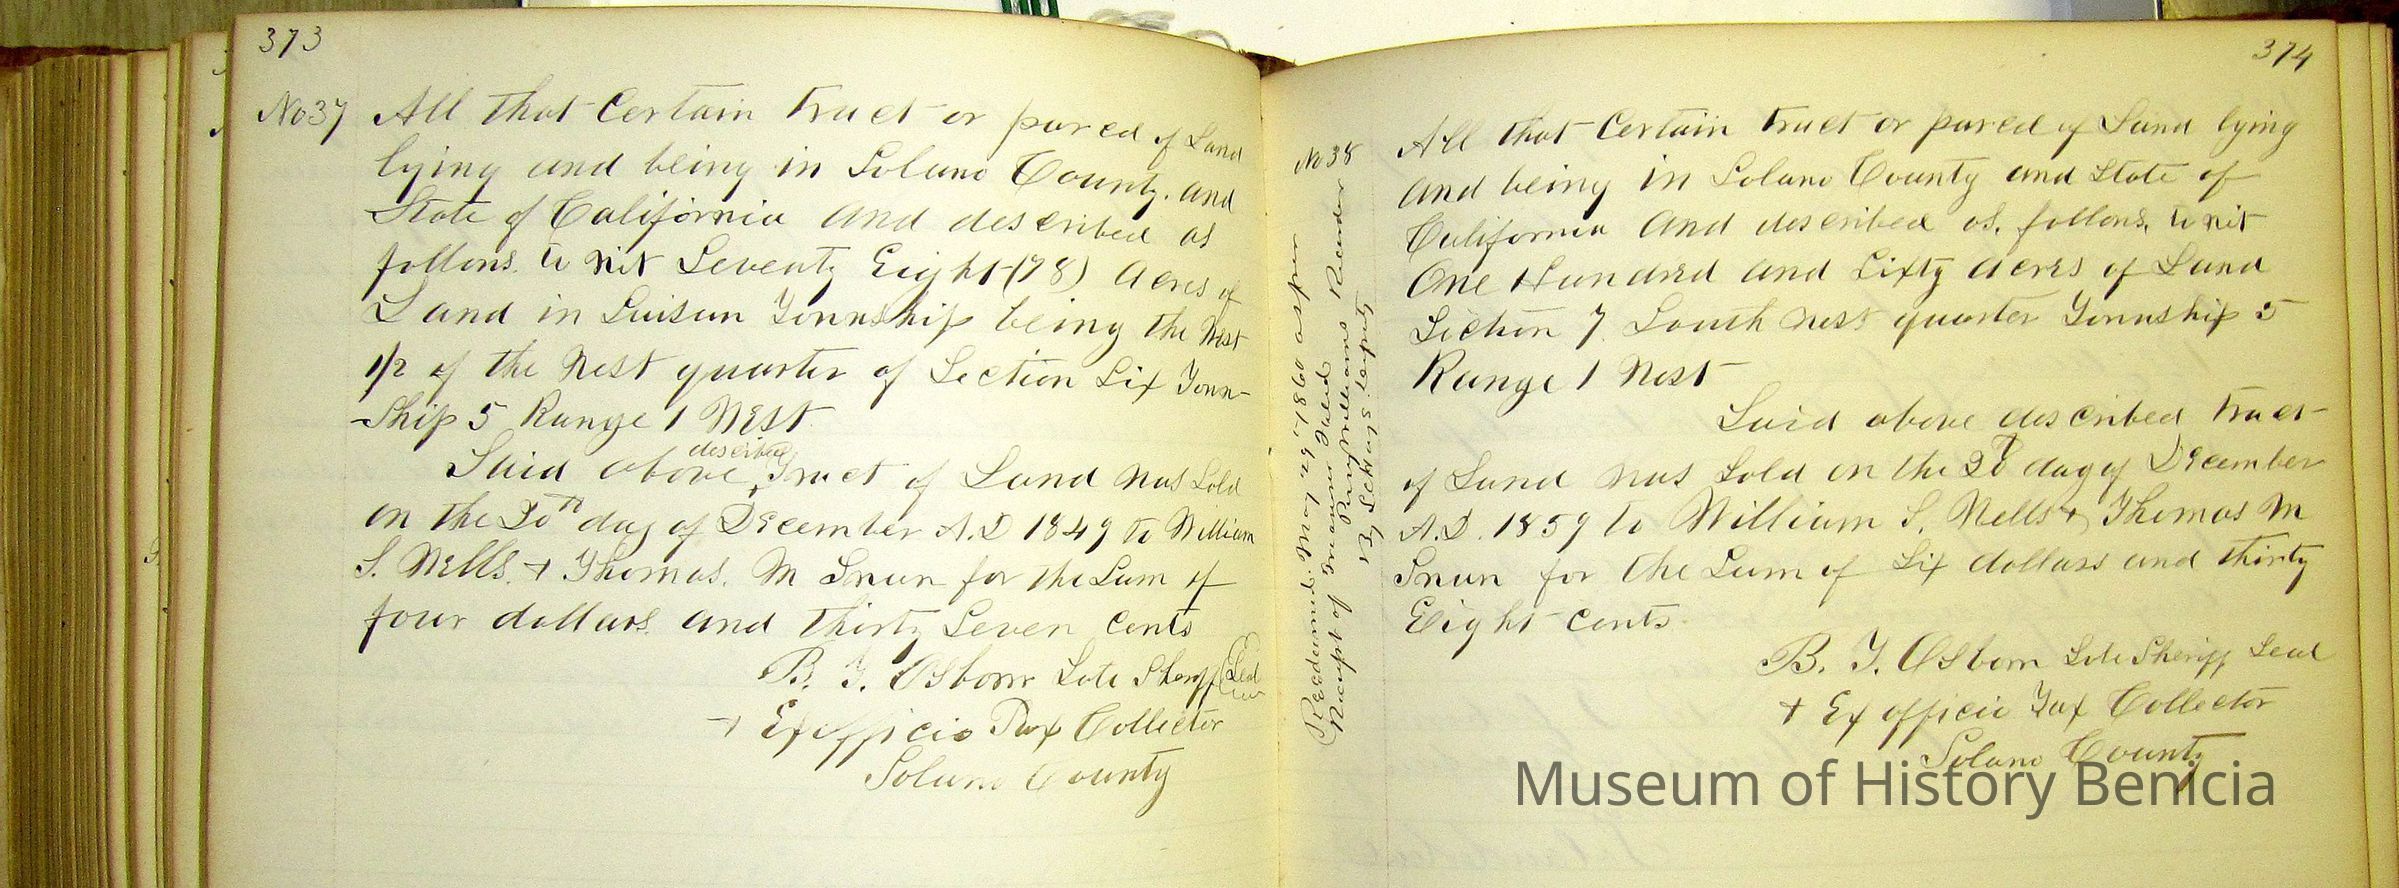 373
No 37 All that Certain tract or parced of Land
lying and being in Solano County. and
State of California and described as
follows. to wit Seventy Eight (78) Acres of
Land in Suisun Township being the West
1/2 of the West quarter of Section Six Town-
-Ship 5 Range 1 West
described
Said above Tract of Land was Sold
on the 30th day of December A.D 1849 to William
S. Wells. + Thomas. M Swan for the Sum of
four dollars. and thirty Seven Cents
B. F. Osborn Late Sheriff Seal
+ Ex officio Tax Collector
Solano County
374
No 38
Redeemed. May 29, 1860 as per
Receipt of Treasurer filed
Paul Williams Recorder
By Deputy
All that Certain tract or parced of Land lying
and being in Solano County and State of
California And described as. follows, to wit
One Hundred and Sixty acres of Land
Section 7 South West quarter Township 5
Range 1 West
Said above described tract
of Land was Sold on the 30 day of December
A.D. 1859 to William S. Wells + Thomas M
Swan for the Sum of Six dollars and thirty
Eight Cents.
B. F. Osborn Late Sheriff Seal
+ Ex officio Tax Collector
Solano County
Museum of History Benicia